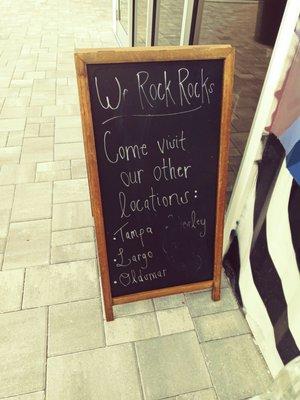 Wr Rock Rocks
Come visit
our other
locations:
. Tampa
. Largo
. Oldsmar